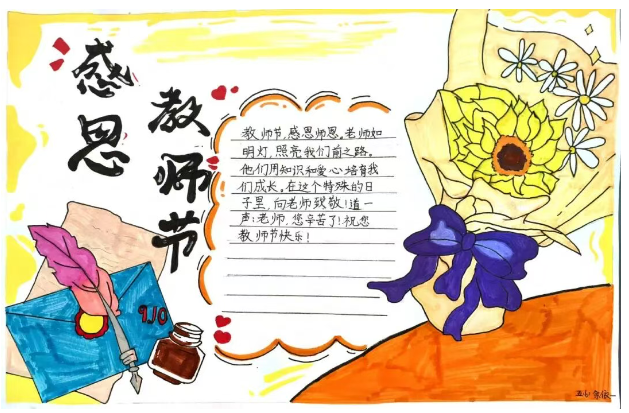 感恩
教师节
教师节,感恩师恩。老师如
明灯,照亮我们前之路。
他们用知识和爱心培育我
们成长。在这个特殊的日
子里,向老师致敬!道一
声:老师,您辛苦了!祝您
教师节快乐!
9.10